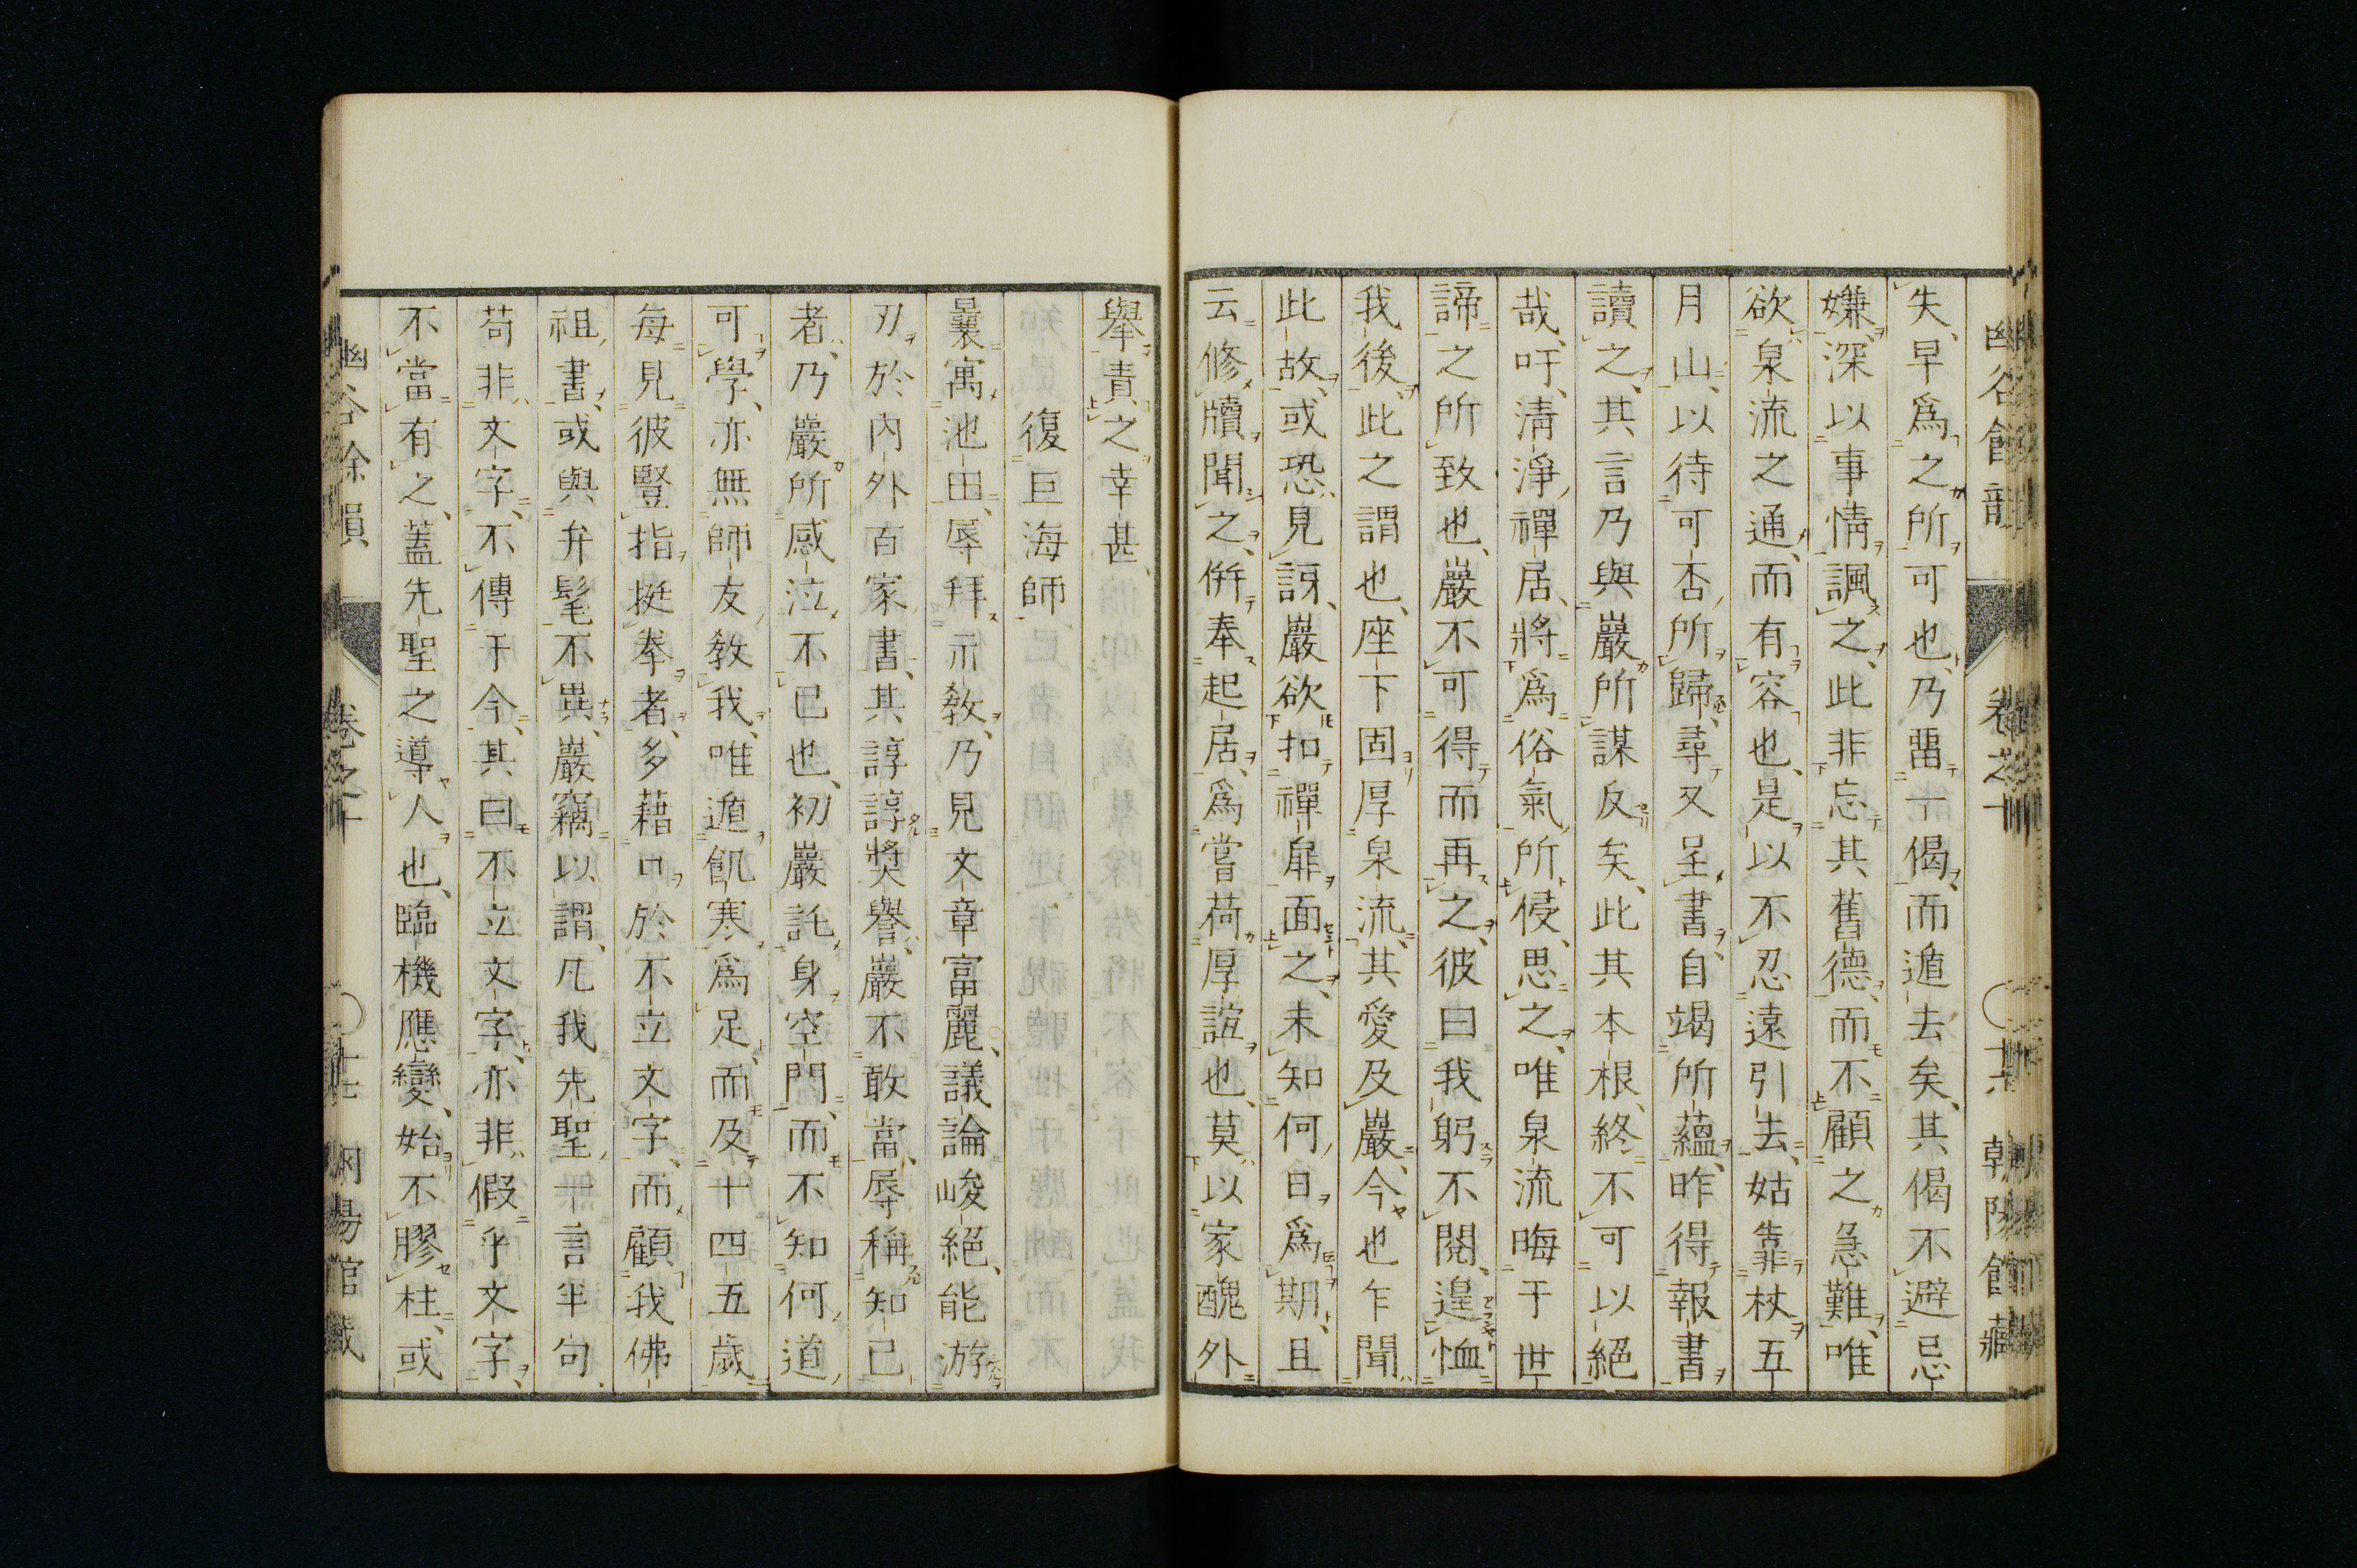 失、早爲之所可也、乃畱一偈、而遁去矣、其偈不避忌
嫌、深以事情諷之、此非忘其舊德、而不顧之急難、唯
欲泉流之通、而有容也、是以不忍遠引去、姑靠杖五
月山、以待可否、所歸尋又呈書、自竭所蘊、昨得報書
讀之、其言乃與巖所謀反矣、此其本根、終不可以絕
哉、吁、淸淨禪居、將爲俗氣所侵、思之、唯泉流晦于世
諦之所致也、巖不可得而再之、彼曰我躬不閱、遑恤
我後、此之謂也、座下固厚泉流、其愛及巖、今也乍聞
此故、或恐見訝、巖欲扣禪扉面之、未知何日爲期、且
云修牘聞之、併奉起居、爲嘗荷厚誼也、莫以家醜外
擧責之、幸甚、
復巨海師
曩寓池田、辱拜示敎、乃見文章富麗、議論峻絕、能游
刃於內外百家書、其諄諄奬譽、巖不敢當、辱稱知己
者、乃巖所感泣不已也、初巖託身空門、而不知何道
可學、亦無師友敎我、唯遁飢寒爲足、而及十四五歲
每見彼豎指挺拳者、多藉口於不立文字、而顧我佛
祖書、或與弁髦不異、巖竊以謂、凡我先聖一言半句
苟非文字、不傳于今、其曰不立文字、亦非假乎文字、
不當有之、蓋先聖之導人也、臨機應變、始不膠柱、或
幽谷餘韻
卷之十
朝陽館藏